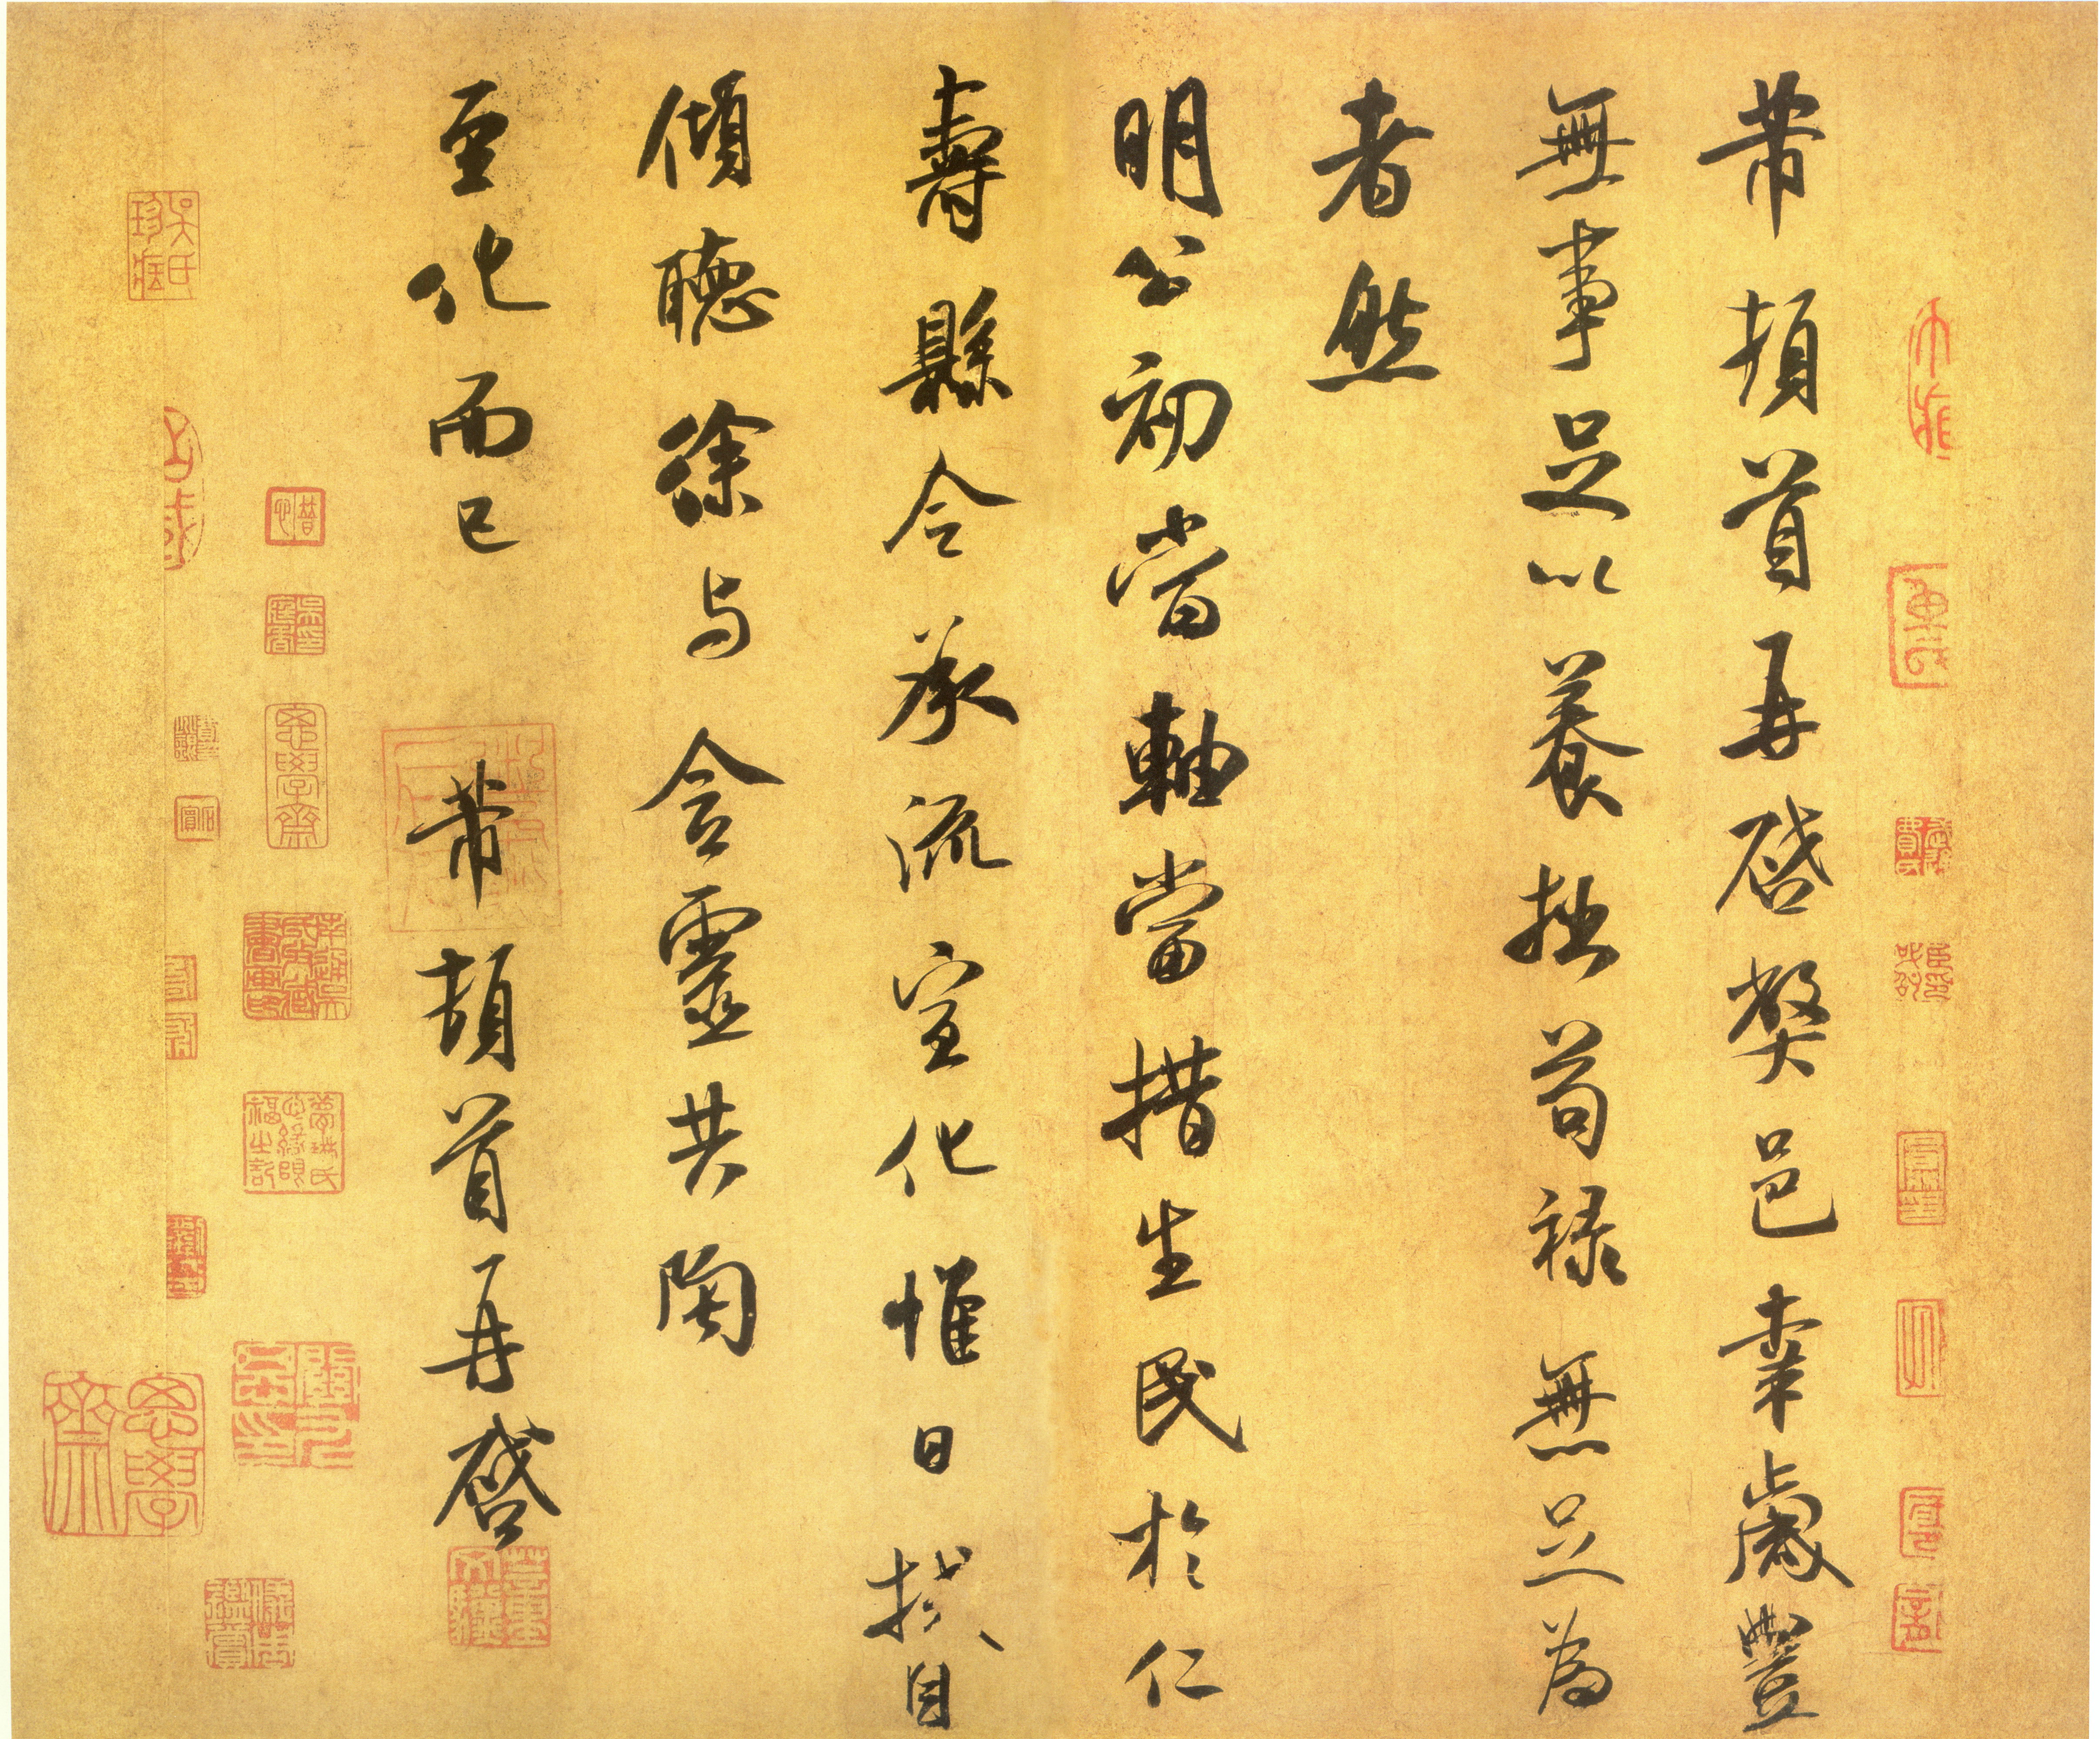 芾頓首再啓弊邑幸歲豐
無事足以養拙苟祿無足為
者然
明公初當軸當措生民於仁
壽縣令承流宣化惟日拭目
傾聽徐与含靈共陶
至化而已 芾頓首再啓
思學齋
吳氏珍藏
思學齋